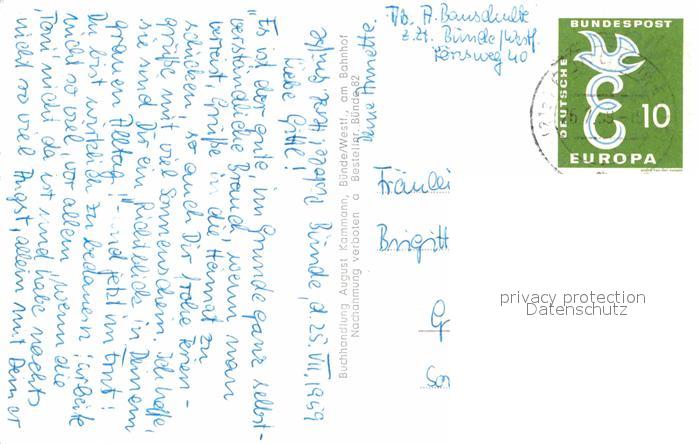 Abs. A. Bauschulte
z.Zt. Bünde/Westf.
BUNDESPOST
DEUTSCHE
10
EUROPA
Fräulei
Brigitt
G
privacy protection
Datenschutz
Bünde, d. 25. VII. 1959
Liebe Gitti!
"Es ist der gute im Grunde ganz selbst-
verständliche Brauch, wenn man
verreist, Grüße in die Heimat zu
schicken, so auch Dir frohe Ferien-
grüße mit viel Sonnenschein. Ich hoffe,
sie sind Dir ein Lichtblick in Deinem
grauen Alltag! und jetzt im Ernst:
Du bist wirklich zu bedauern; arbeite
nicht so viel, vor allem, wenn die
Toni nicht da ist und habe nachts
nicht so viel Angst, allein mit Deiner
Deine Annette.
Buchhandlung August Kammann, Bünde/Westf., am Bahnhof
Nachahmung verboten a Bestellnr. Bünde 82